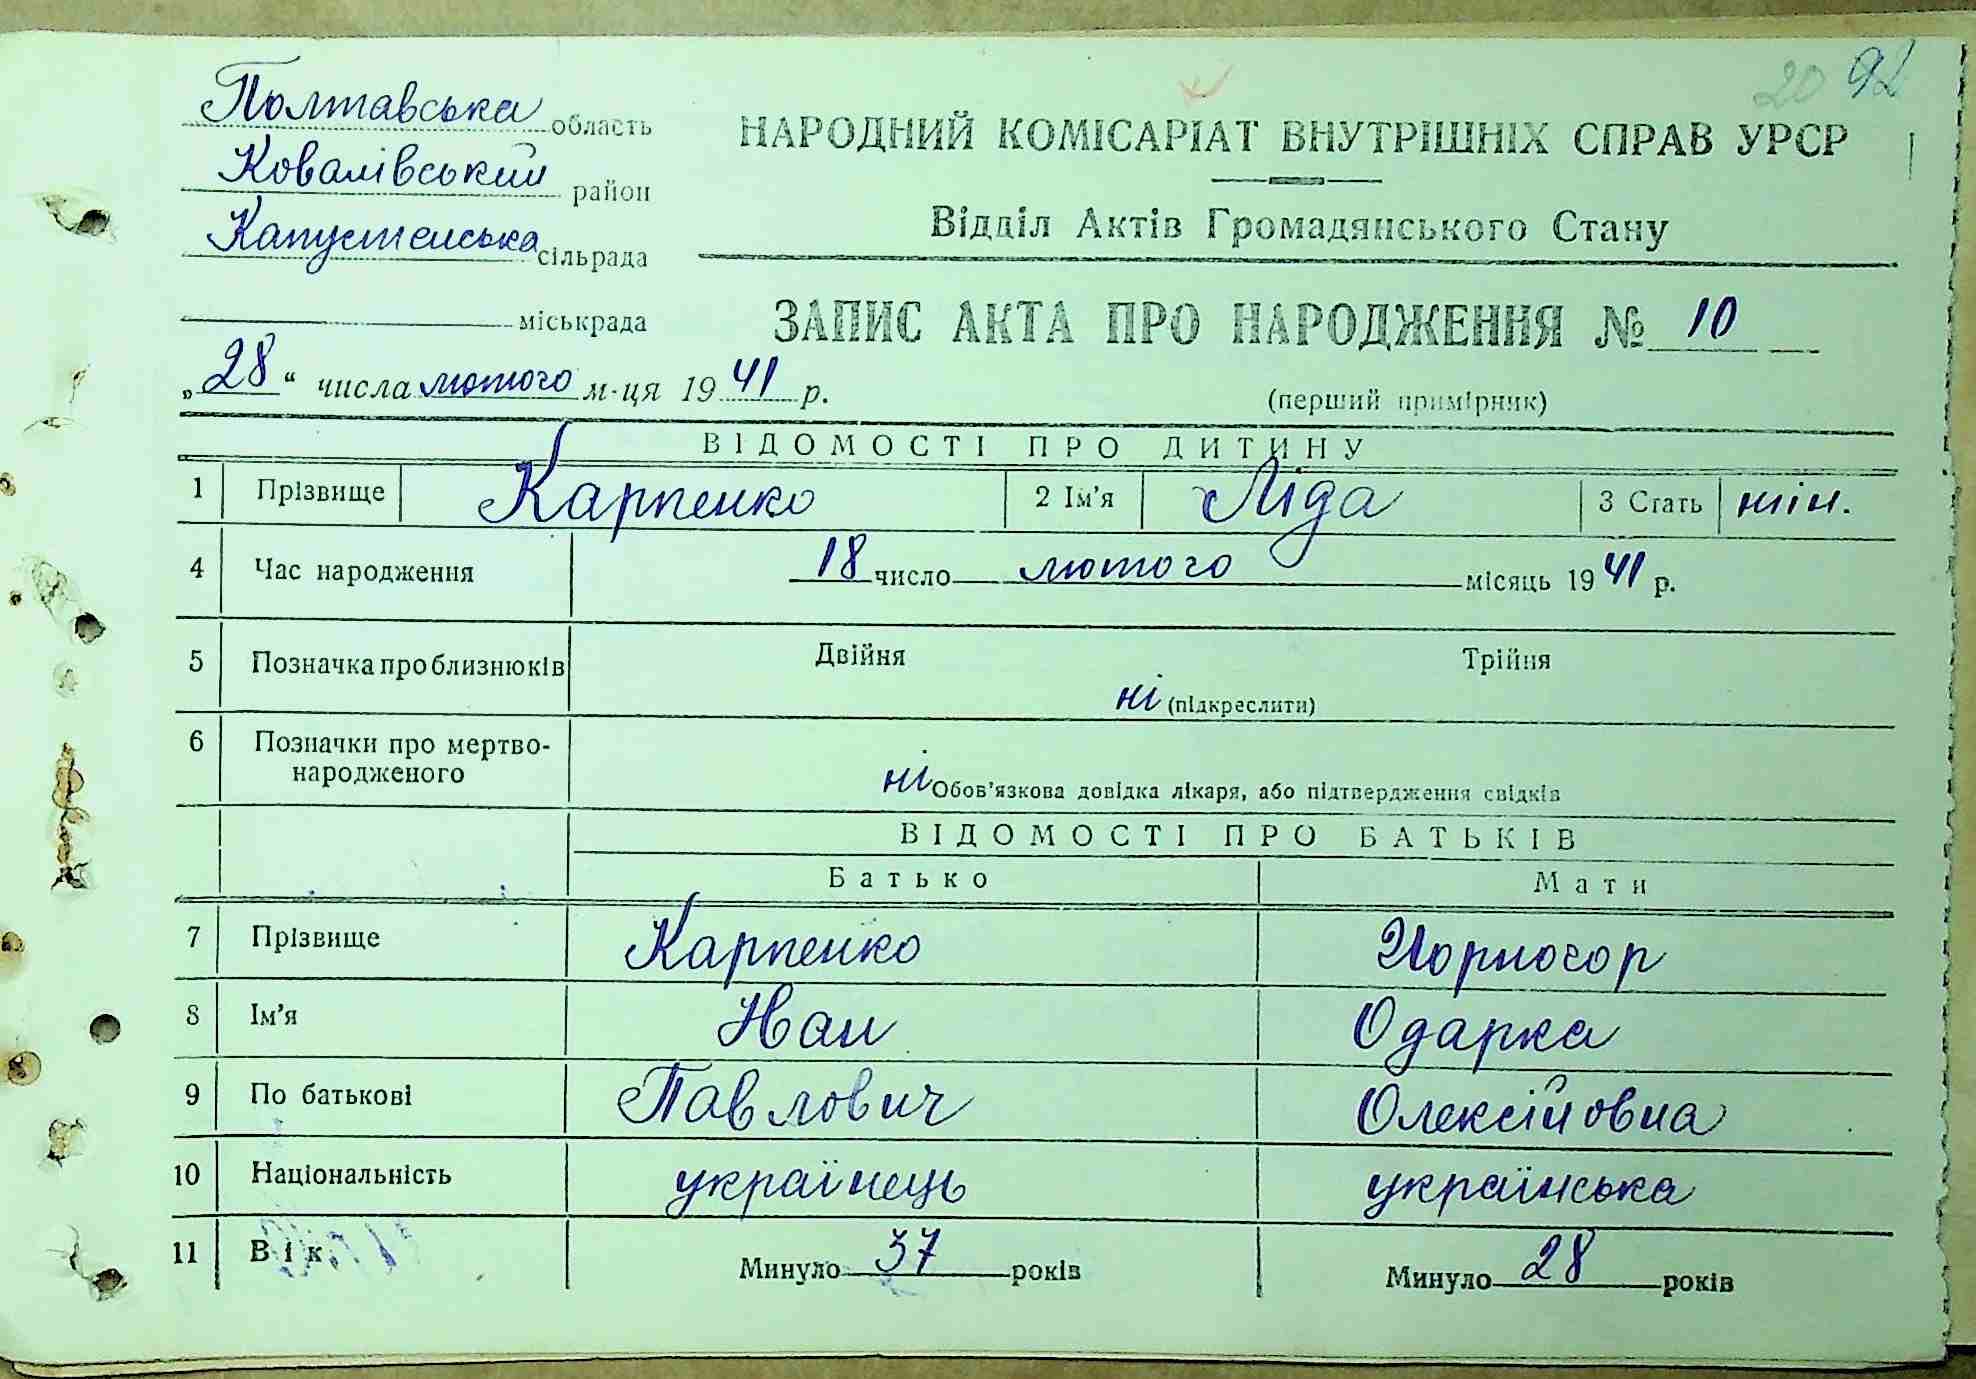 20 92
Полтавська область
Ковалівський район
Капустенська сільрада
міськрада
„28“ числа лютого м-ця 1941 р.
НАРОДНИЙ КОМІСАРІАТ ВНУТРІШНІХ СПРАВ УРСР
Відділ Актів Громадянського Стану
ЗАПИС АКТА ПРО НАРОДЖЕННЯ № 10
(перший примірник)
ВІДОМОСТІ ПРО ДИТИНУ
1 Прізвище Карпенко 2 Ім'я Ліда 3 Стать жін.
4 Час народження 18 число лютого місяць 1941 р.
5 Позначка про близнюків Двійня Трійня
ні (підкреслити)
6 Позначки про мертво-
народженого
ні Обов'язкова довідка лікаря, або підтвердження свідків
ВІДОМОСТІ ПРО БАТЬКІВ
Батько Мати
7 Прізвище Карпенко Чорногор
8 Ім'я Іван Одарка
9 По батькові Павлович Олексійовна
10 Національність українець українська
11 Вік Минуло 37 років Минуло 28 років